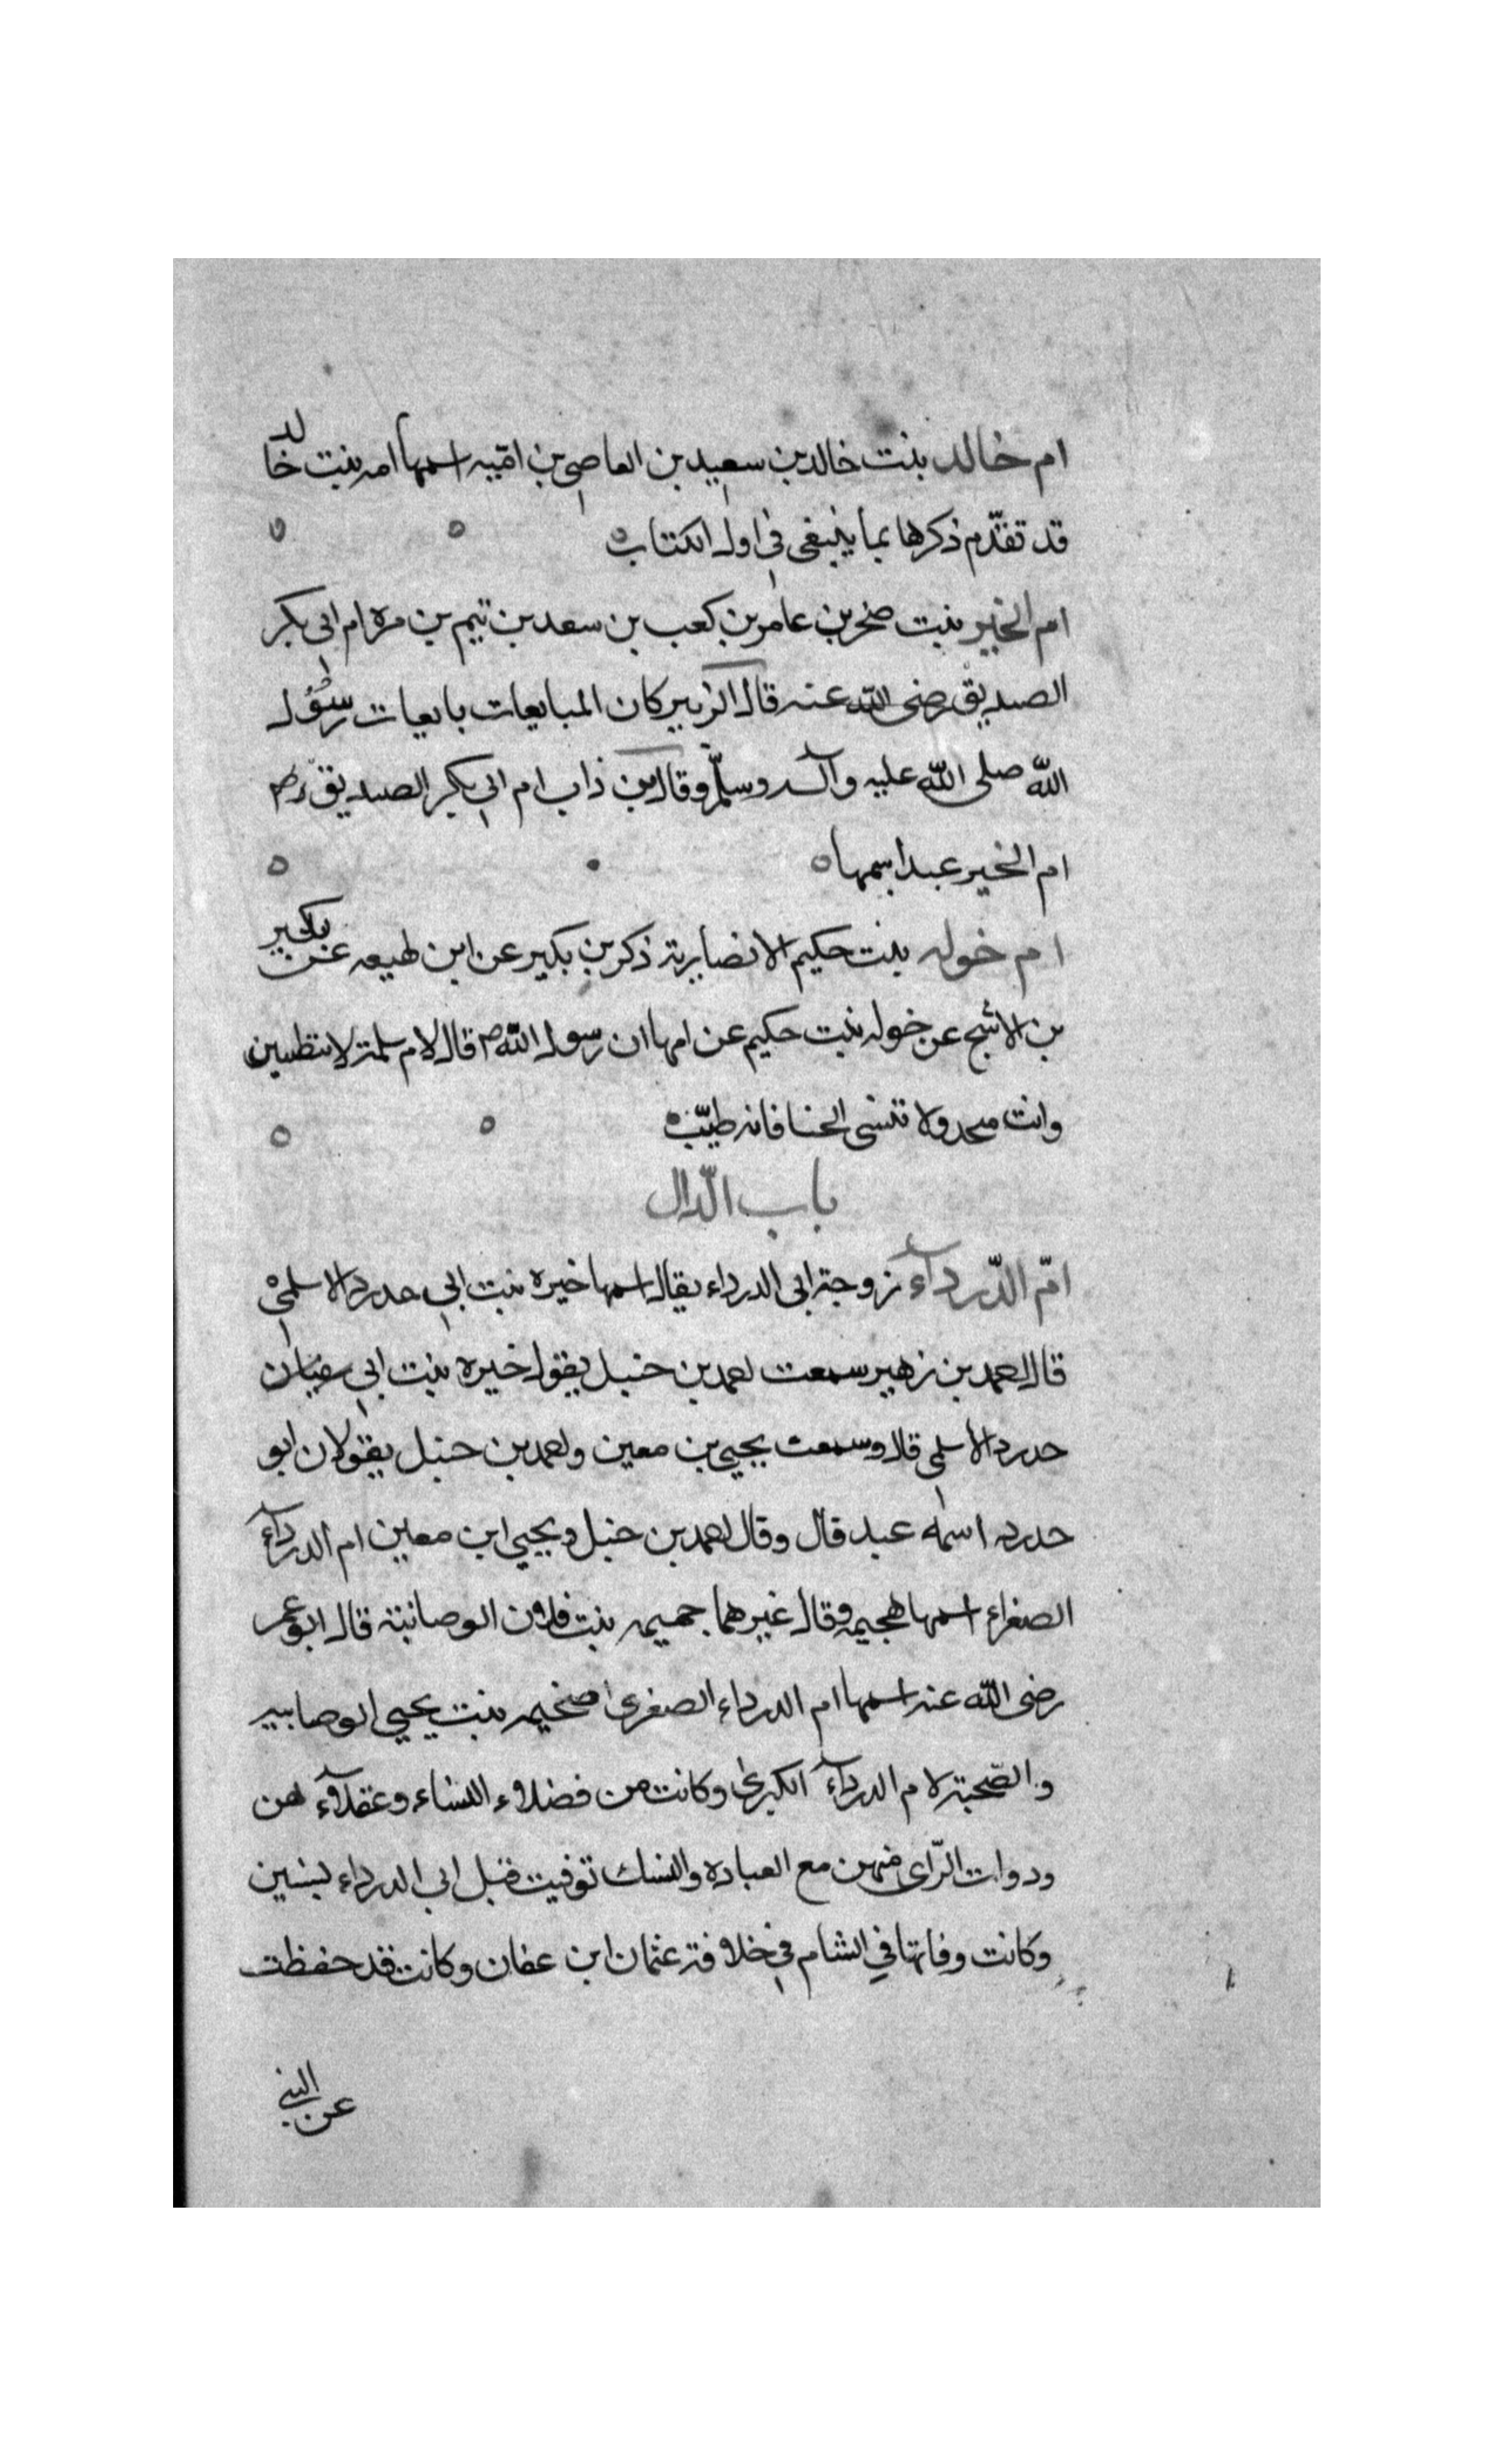 ام خالد بنت خالد بن سعيد بن العاصي بن اميه اسمها امه بنت خالد
قد تقدّم ذكرها بما ينبغى فى اول الكتاب
ام الخير بنت صخر بن عامر بن كعب بن سعد بن تيم بن مره ام ابى بكر
الصديق رضى الله عنه قال الزبير كان المبايعات بايعات رسُول
الله صلى الله عليه وآله وسلّم وقال ابن ذاب ام ابي بكر الصديق رض
ام الخير عبد اسمها
ام خوله بنت حكيم الانصارية ذكر بن بكير عن ابن لهيعه عن بكير
بن الاشج عن خوله بنت حكيم عن امها ان رسول الله ص قال لام سلمة لا تنطيبين
وانت محد ولا تنسى الحنا فانه طيّب
باب الدّال
امّ الدّرداء زوجة ابى الدرداء يقال اسمها خيره بنت ابي حدرد الاسلمي
قال احمد بن زهير سمعت احمد بن حنبل يقول خيره بنت ابي سفيان
حدرد الاسلمى قال وسمعت يحيى بن معين واحمد بن حنبل يقولان ابو
حدرد اسمه عبد قال وقال احمد بن حنبل ويحيى ابن معين ام الدرداء
الصغراء اسمها هجيمه وقال غيرهما جميمه بنت فلان الوصابية قال ابو عمر
رضى الله عنه اسمها ام الدرداء الصغرى بنت يحيى الوصابيه
والصّحبة لام الدرداء الكبرى وكانت من فضلاء النساء وعقلاء هن
ودوات الرّاى منهن مع العباده والنسك توفيت قبل ابى الدرداء بسنين
وكانت وفاتها في الشام فى خلافة عثمان ابن عفان وكانت قد حفظت
عن النبي